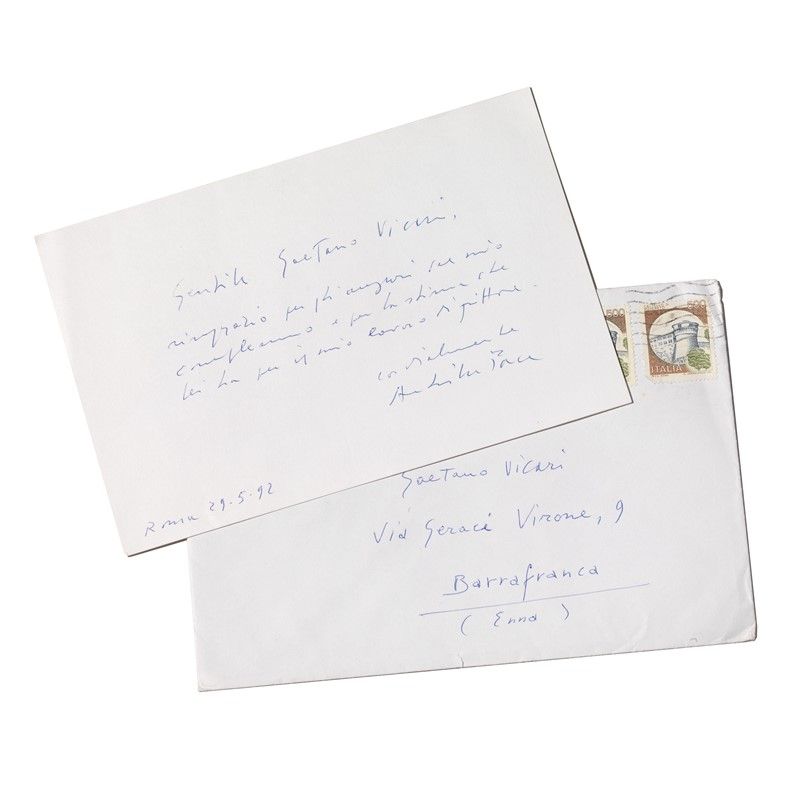 Gentile Gaetano Vicari,
ringrazio per gli auguri sul mio
compleanno e per la stima che
lei ha per il mio lavoro di pittore.
cordialmente
Achille Pace
Roma 29.5.92
500
500
ITALIA
Gaetano Vicari
Via Geraci Virone, 9
Barrafranca
(Enna)